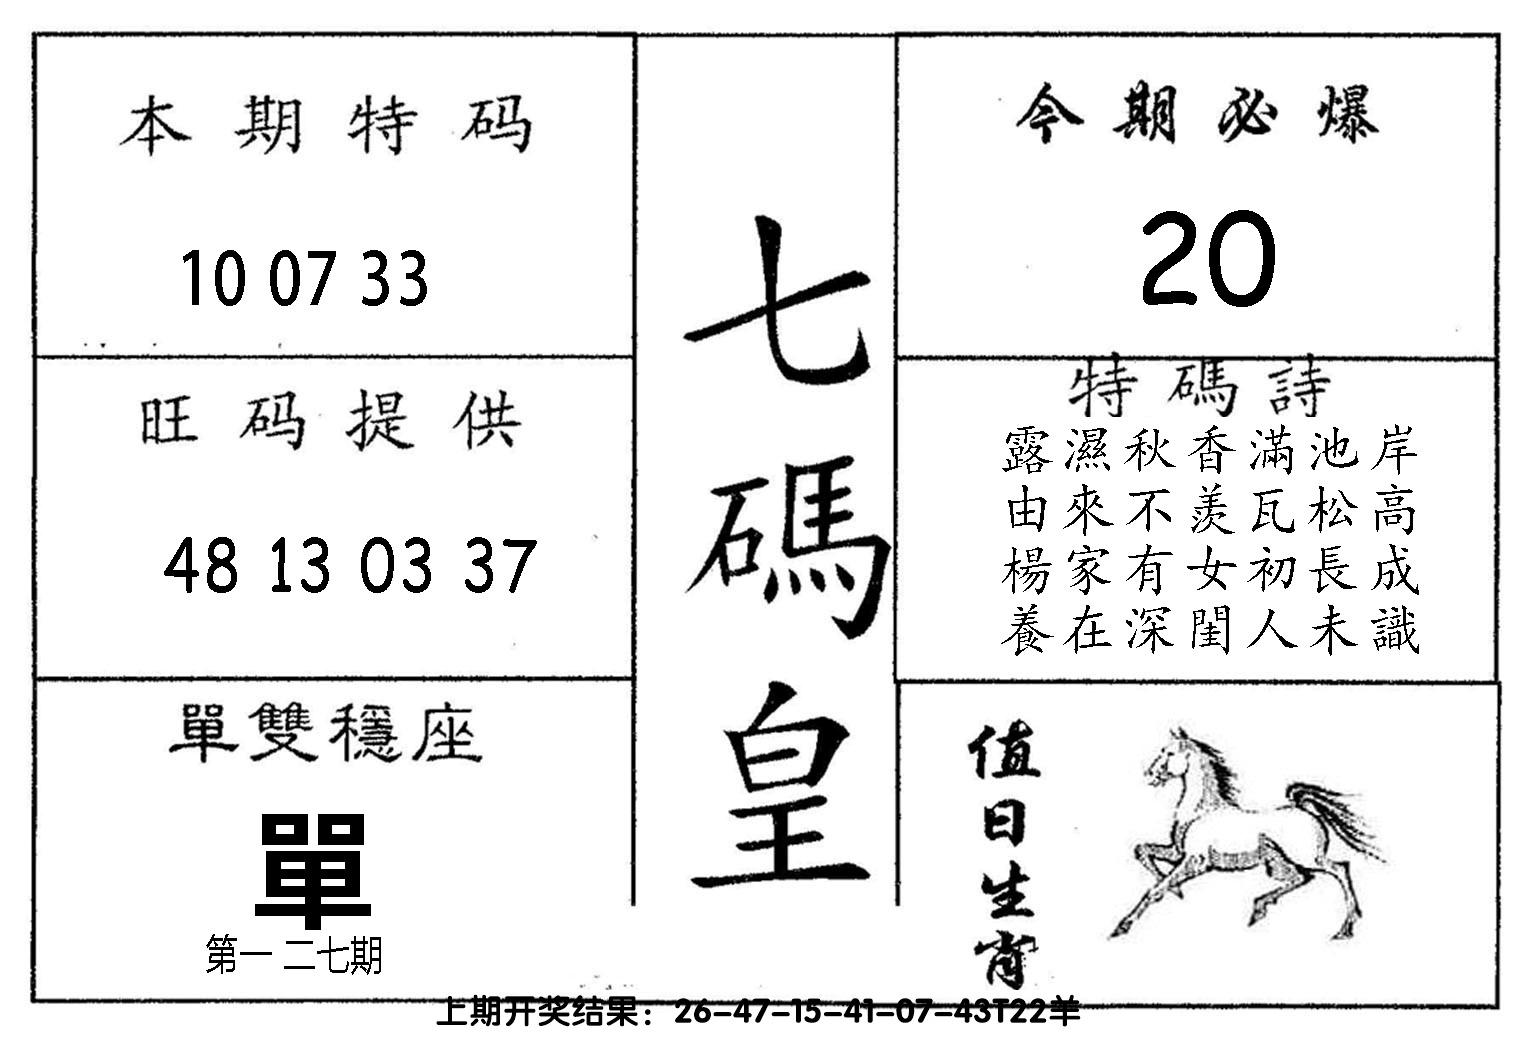 本期特码
10 07 33
旺码提供
48 13 03 37
單雙穩座
單
第一二七期
七碼皇
今期必爆
20
特碼詩
露濕秋香滿池岸
由來不羨瓦松高
楊家有女初長成
養在深閨人未識
值日生肖
上期开奖结果：26-47-15-41-07-43T22羊